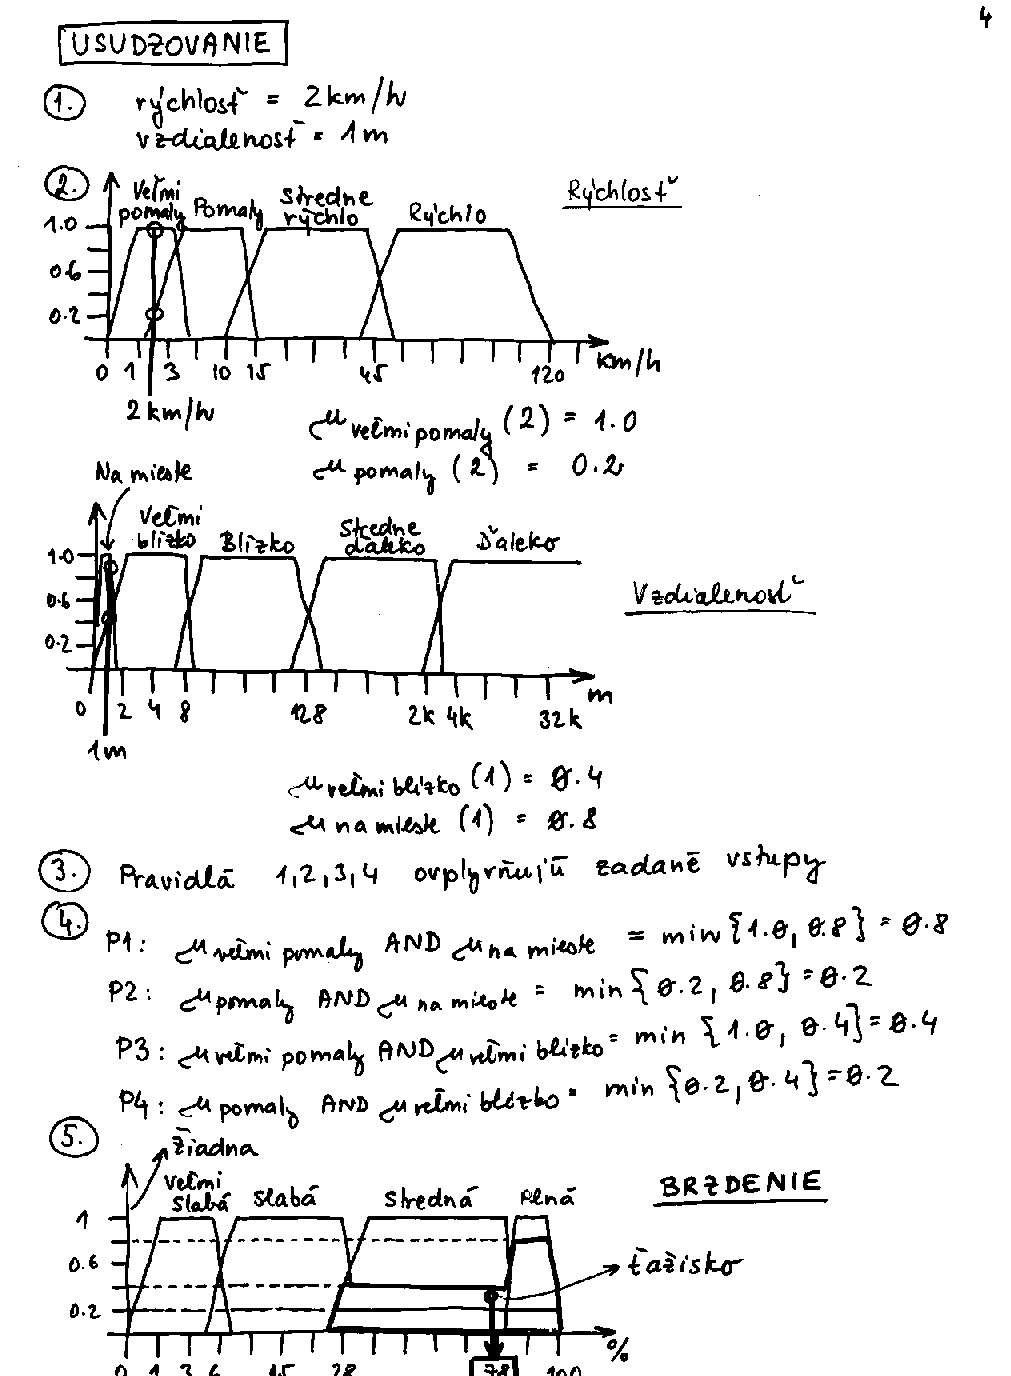 4
USUDZOVANIE
1. rýchlosť = 2 km/h
vzdialenosť = 1 m
2. Veľmi pomaly Pomaly Stredne rýchlo Rýchlo Rýchlosť
1.0
0.6
0.2
0 1 3 10 15 45 120 km/h
2 km/h
μ veľmi pomaly (2) = 1.0
μ pomaly (2) = 0.2
Na mieste
Veľmi blízko Blízko Stredne ďaleko Ďaleko
1.0
0.6
0.2
Vzdialenosť
0 2 4 8 128 2k 4k 32k m
1 m
μ veľmi blízko (1) = 0.4
μ na mieste (1) = 0.8
3. Pravidlá 1,2,3,4 ovplyvňujú zadané vstupy
4.
P1: μ veľmi pomaly AND μ na mieste = min {1.0, 0.8} = 0.8
P2: μ pomaly AND μ na mieste = min {0.2, 0.8} = 0.2
P3: μ veľmi pomaly AND μ veľmi blízko = min {1.0, 0.4} = 0.4
P4: μ pomaly AND μ veľmi blízko = min {0.2, 0.4} = 0.2
5.
Žiadna
Veľmi Slabá Slabá Stredná Plná BRZDENIE
1
0.6
0.2
ťažisko
0 1 3 6 15 28 78 100 %